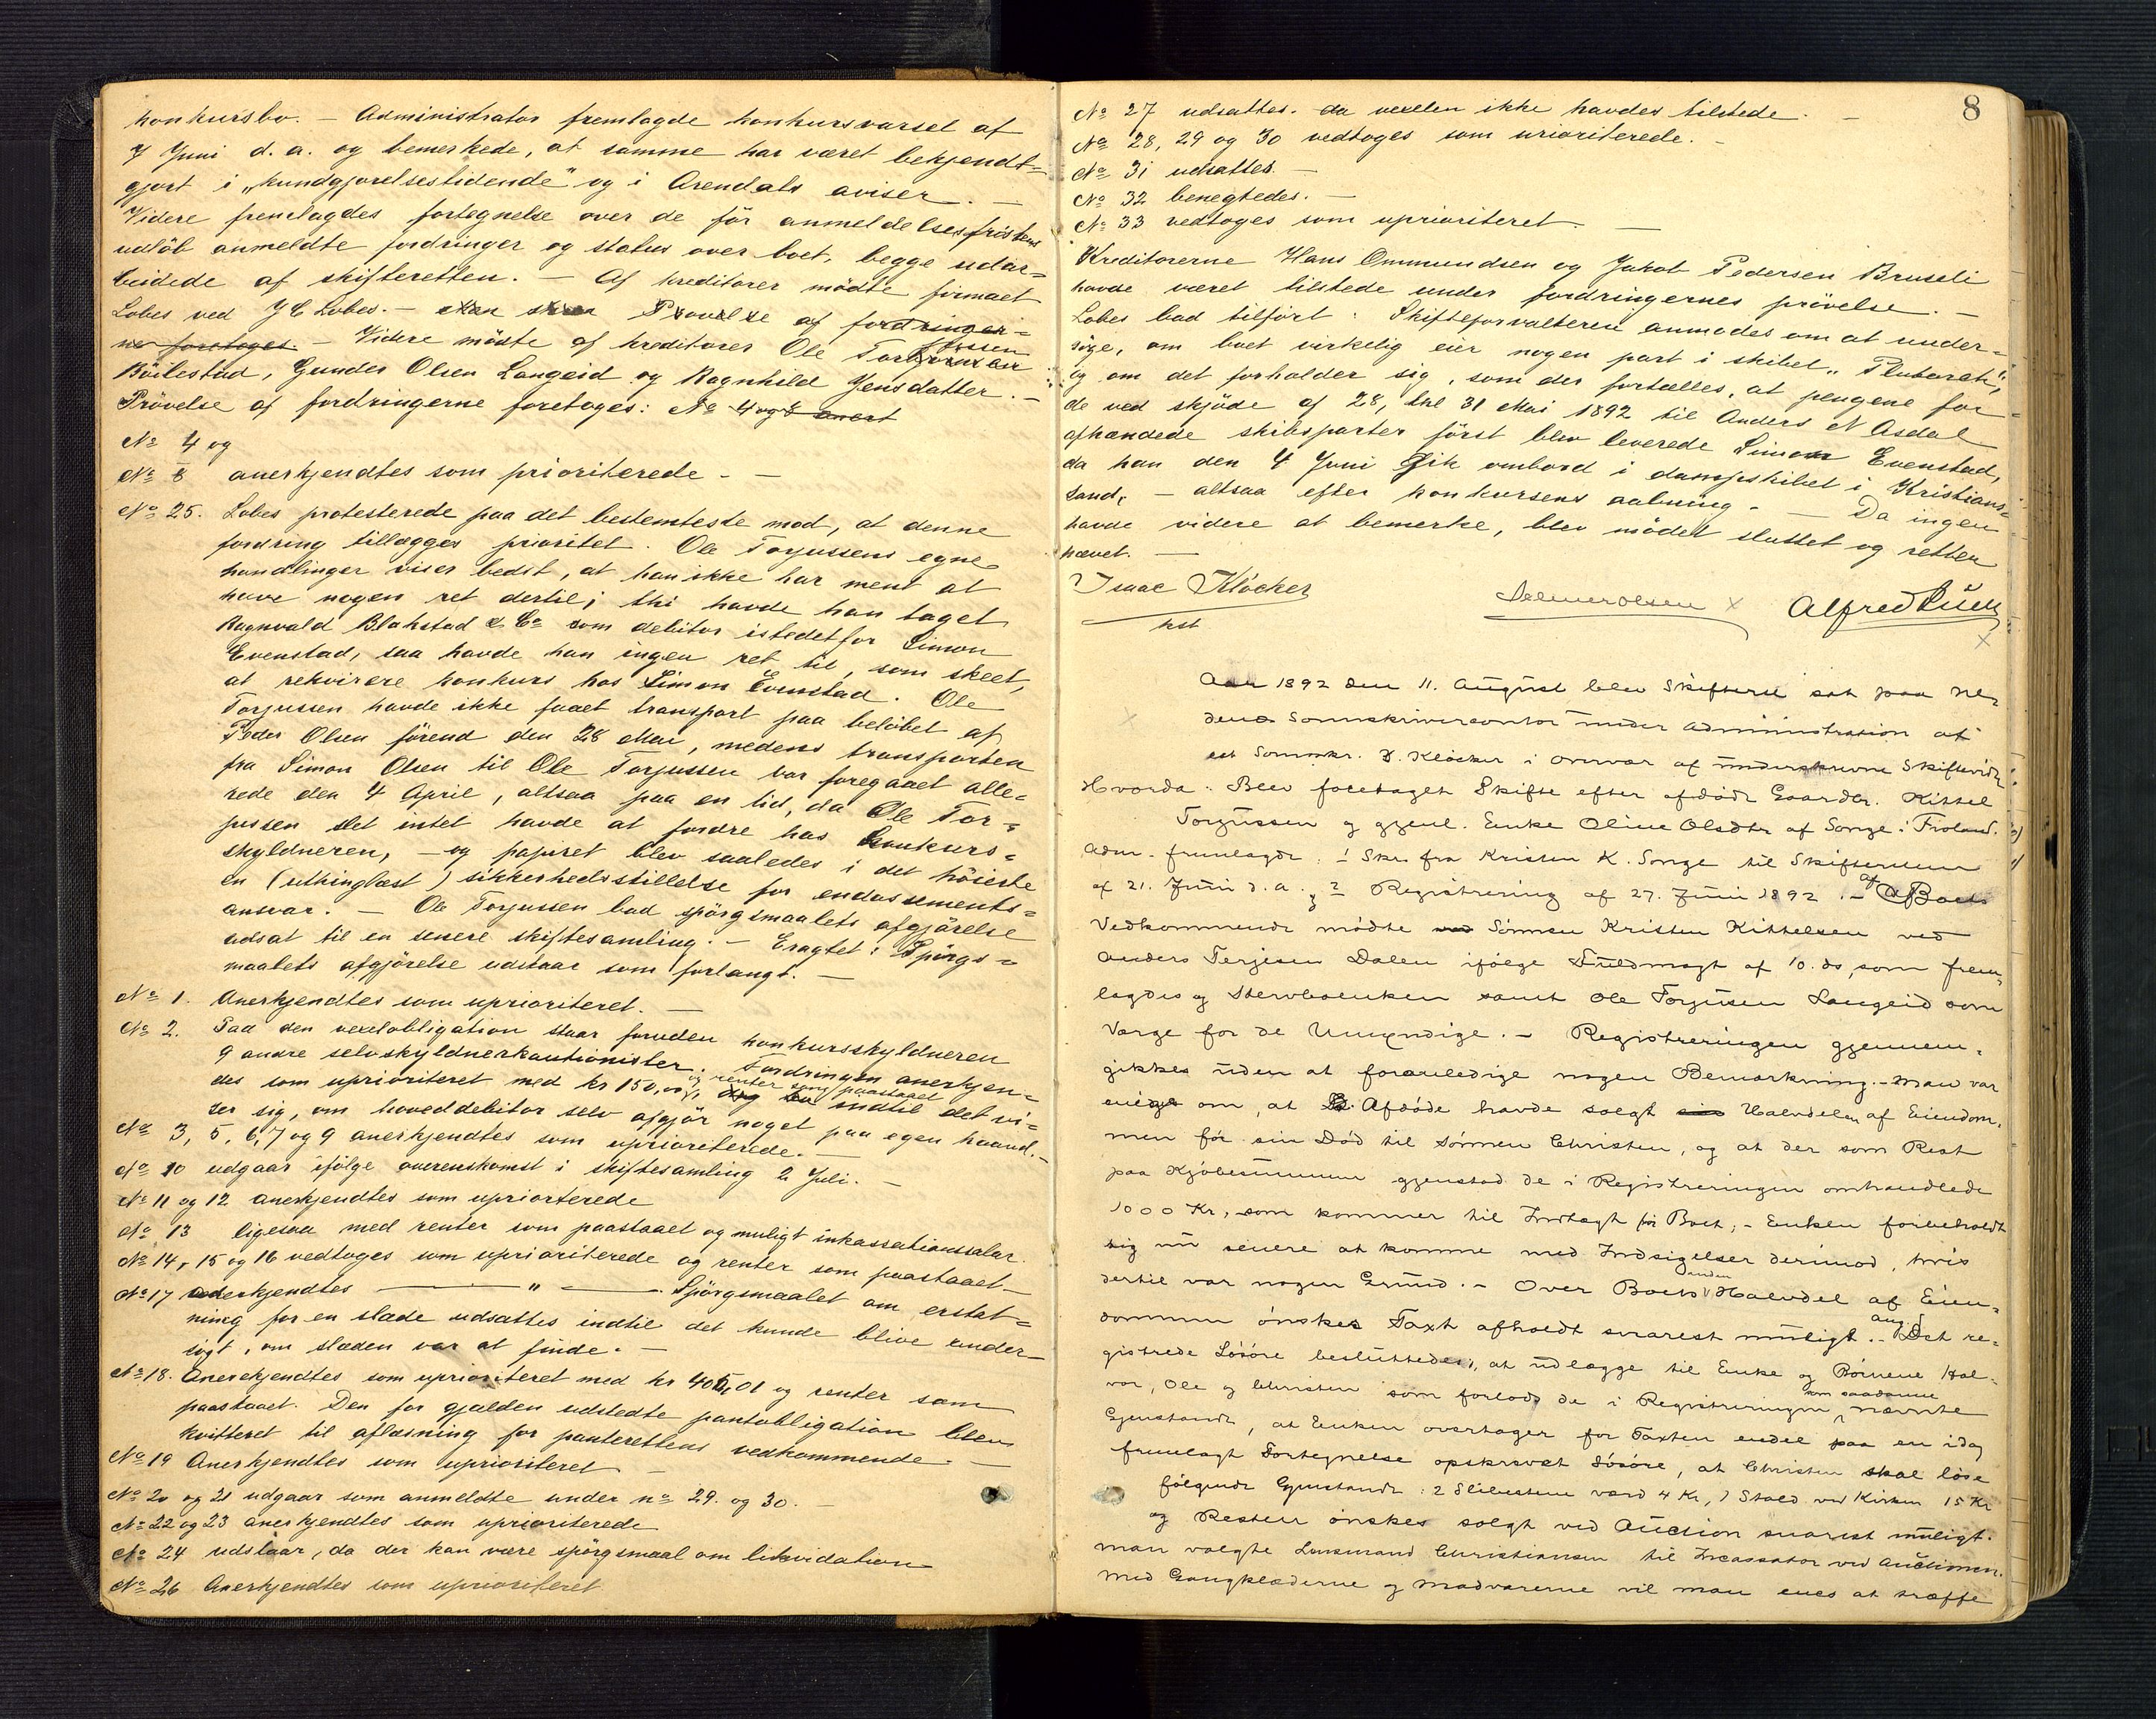 konkursbo. — Administrator fremlagde konkursvarsel af
7 Juni d. a. og bemerkede, at samme har været bekjendt=
gjort i „kundgjørelsestidende" og i Arendals aviser. —
Videre fremlagdes fortegnelse over de før anmeldelsesfristens
udløb anmeldte fordringer og status over boet, begge udar=
beidede af skifteretten. — Af kreditorer mødte firmaet
Lobes ved J C Lobes. — Prøvelse af fordringer=
ne foretoges. — Videre mødte af kreditorer Ole Torjussen
Bøilestad, Gunder Olsen Langeid og Ragnhild Jensdatter. —
Prøvelse af fordringerne foretoges: No 4 og 8 anert
No 4 og
No 8 anerkjendtes som prioriterede. —
No 25. Lobes protesterede paa det bestemteste mod, at denne
fordring tillægges prioritet. Ole Torjussens egne
handlinger viser bedst, at han ikke har ment at
have nogen ret dertil; thi havde han taget
Ragnvald Blakstad & Co som debitor istedetfor Simon
Evenstad, saa havde han ingen ret til, som skeet,
at rekvirere konkurs hos Simon Evenstad. Ole
Torjussen havde ikke faaet transport paa beløbet af
Peder Olsen førend den 28 Mai, medens transporten
fra Simon Olsen til Ole Torjussen var foregaaet alle=
rede den 4 April, altsaa paa en tid, da Ole Tor=
jussen slet intet havde at fordre hos konkurs=
skyldneren, — og papiret blev saaledes i det høieste
en (uthinglæst) sikkerhedsstillelse for endossements=
ansvar. — Ole Torjussen bad spørgsmaalets afgjørelse
udsat til en senere skiftesamling. — Eragtet: Spørgs=
maalets afgjørelse udstaar som forlangt. —
No 1. Anerkjendtes som uprioriteret. —
No 2. Paa den vexelobligation staar foruden konkursskyldneren
9 andre selvskyldnerkautionister. Fordringen anerkjen=
og renter som paastaaet
des som uprioriteret med kr 150,00, indtil det vi=
ser sig, om hoveddebitor selv afgjør noget paa egen haand. —
No 3, 5, 6, 7 og 9 anerkjendtes som uprioriterede. —
No 10 udgaar ifølge overenskomst i skiftesamling 2 Juli. —
No 11 og 12 anerkjendtes som upriorterede
No 13 ligesaa med renter som paastaaet og muligt inkassationssalær.
No 14, 15 og 16 vedtoges som uprioriterede og renter som paastaaet —
No 17 anerkjendtes — " — . Spørgsmaalet om erstat=
ning for en slæde udsattes indtil det kunde blive under=
søgt, om slæden var at finde. —
No 18. Anerkjendtes som uprioriteret med kr 405,01 og renter som
paastaaet. Den for gjælden udstedte pantobligation blev
kvitteret til aflæsning for panterettens vedkommende. —
No 19 Anerkjendtes som uprioriteret —
No 20 og 21 udgaar som anmeldte under no 29. og 30. —
No 22 og 23 anerkjendtes som uprioriterede
No 24 udstaar, da der kan være spørgsmaal om likvidation
No 26 Anerkjendtes som uprioriteret
8
No 27 udsattes. da vexelen ikke havdes tilstede. —
No 28, 29 og 30 vedtoges som urioriterede. —
No 31 udsattes. —
No 32 benegtedes. —
No 33 vedtoges som uprioriteret. —
Kreditorerne Hans Ommundsen og Jakob Pedersen Bruseli
havde været tilstede under fordringernes prøvelse. —
Lobes bad tilført: Skifteforvalteren anmodes om at under=
søge, om boet virkelig eier nogen part i skibet „Plutarch",
og om det forholder sig, som der fortælles, at pengene for
de ved skjøde af 28, thl 31 Mai 1892 til Anders N Asdal
afhændede skibsparter først blev leverede Simon Evenstad,
da han den 4 Juni gik ombord i dampskibet i Kristians=
sand, — altsaa efter konkursens aabning. — Da ingen
havde videre at bemerke, blev mødet sluttet og retten
hævet. —
Isaac Kløcker
kst
Alfred
Aar 1892 den 11. August blev Skifteret sat paa Ne
denes Sorenskrivercontor under Administration af
cst Sorenskr. I. Kløcker i Overvær af underskrevne Skiftevidn
Hvorda: Blev foretaget Skifte efter afdøde Gaardbr. Kittel
Torjussen og gjenl. Enke Oline Olsdtr af Songe i Froland.
Adm. fremlagde: 1 Skr. fra Kristen K. Songe til Skifteretten
af 21. Juni d. a. og 2 Registrering af 27. Juni 1892. — Af Boets
Vedkommende mødte Sønnen Kristen Kittelsen ved
Anders Terjesen Dalen ifølge Fuldmagt af 10. ds, som frem
lagdes og Stervboenken samt Ole Torjusen Langeid som
Værge for de Umyndige. — Registreringen gjennem=
gikkes uden at foranledige nogen Bemærkning. — Man var
enige om, at Afdøde havde solgt Halvdelen af Eiendom=
men før sin Død til Sønnen Christen, og at der som Rest
paa Kjøbesummen gjenstod de i Registreringen omhandlede
1000 Kr, som kommer til Indtægt for Boet; — Enken forbeholdt
sig nu senere at komme med Indsigelser derimod, hvis
dertil var nogen Grund. — Over Boets anden Halvdel af Eien=
dommen ønskes Taxt afholdt snarest muligt. — Ang. Det re=
gistrede Løsøre besluttedes, at udlægge til Enke og Børnene Hal=
vor, Ole og Christen som forlods de i Registreringen som saadanne nævnte
Gjenstande, at Enken overtager for Taxten endel paa en idag
fremlagt Fortegnelse opskrevet Løsøre, at Christen skal løse
følgende Gjenstande: 2 Slibestene værd 4 Kr, 1 Stald ved Kirken 15 Kr
og Resten ønskes solgt ved Auction snarest muligt.
Man valgte Lensmand Christiansen til Incassator ved Auctionen.
Med Gangklæderne og Madvarerne vil man enes at træffe